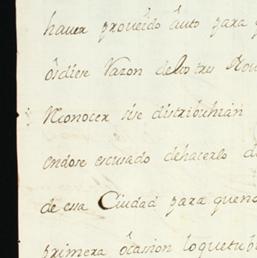 haver proveido auto para q
pidiese razon de lo tres
Riconocer si se distribuhian
endose escusado de hacerlo d
de essa Ciudad para que no
primera ocasion lo que tub